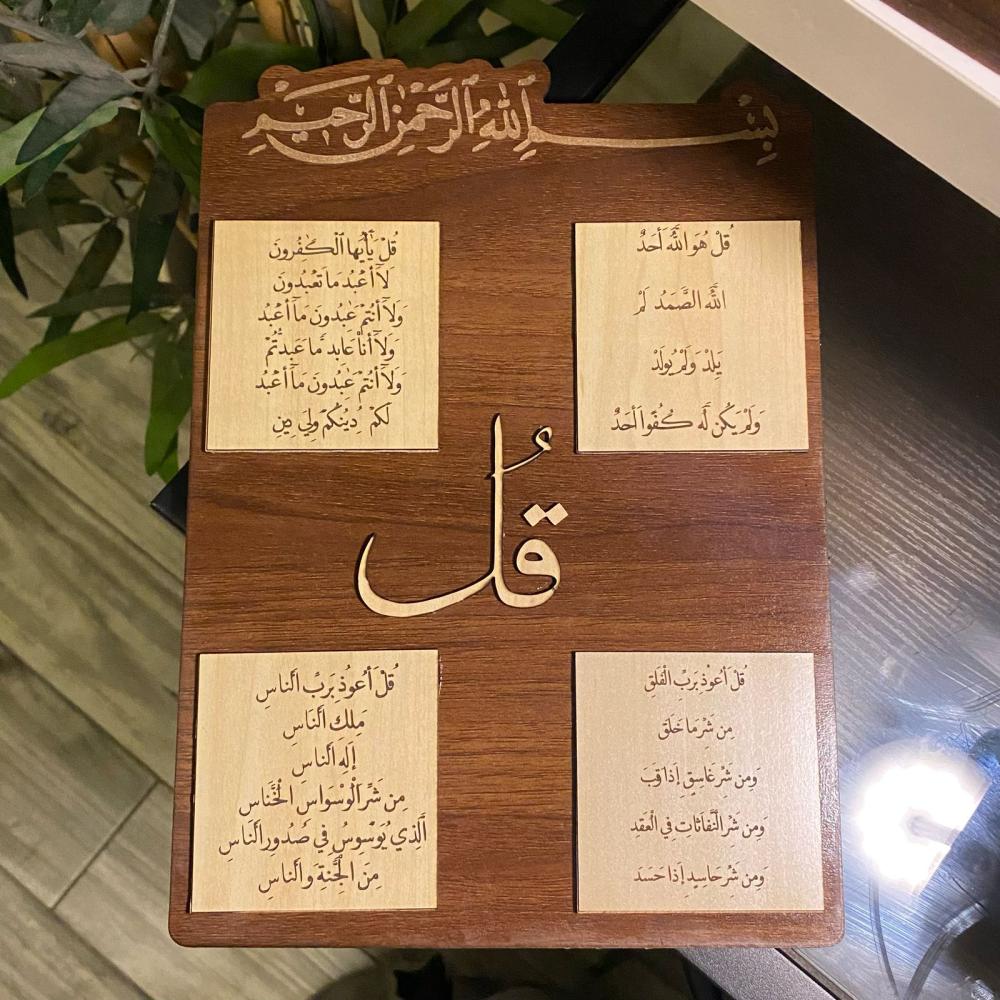 بِسْمِ ٱللَّهِ ٱلرَّحْمَٰنِ ٱلرَّحِيمِ
قُلْ هُوَ اللَّهُ أَحَدٌ
اللَّهُ الصَّمَدُ لَمْ
يَلِدْ وَلَمْ يُولَدْ
وَلَمْ يَكُن لَّهُ كُفُوًا أَحَدٌ
قُلْ يَٰأَيُّهَا ٱلْكَٰفِرُونَ
لَآ أَعْبُدُ مَا تَعْبُدُونَ
وَلَآ أَنتُمْ عَٰبِدُونَ مَآ أَعْبُدُ
وَلَآ أَنَا۠ عَابِدٌ مَّا عَبَدتُّمْ
وَلَآ أَنتُمْ عَٰبِدُونَ مَآ أَعْبُدُ
لَكُمْ دِينُكُمْ وَلِيَ دِينِ
قُل
قُلْ أَعُوذُ بِرَبِّ الْفَلَقِ
مِن شَرِّ مَا خَلَقَ
وَمِن شَرِّ غَاسِقٍ إِذَا قَبَ
وَمِن شَرِّ النَّفَّاثَاتِ فِي الْعُقَدِ
وَمِن شَرِّ حَاسِدٍ إِذَا حَسَدَ
قُلْ أَعُوذُ بِرَبِّ ٱلنَّاسِ
مَلِكِ ٱلنَّاسِ
إِلَٰهِ ٱلنَّاسِ
مِن شَرِّ الْوَسْوَاسِ الْخَنَّاسِ
ٱلَّذِي يُوَسْوِسُ فِي صُدُورِ ٱلنَّاسِ
مِنَ الْجِنَّةِ وَالنَّاسِ